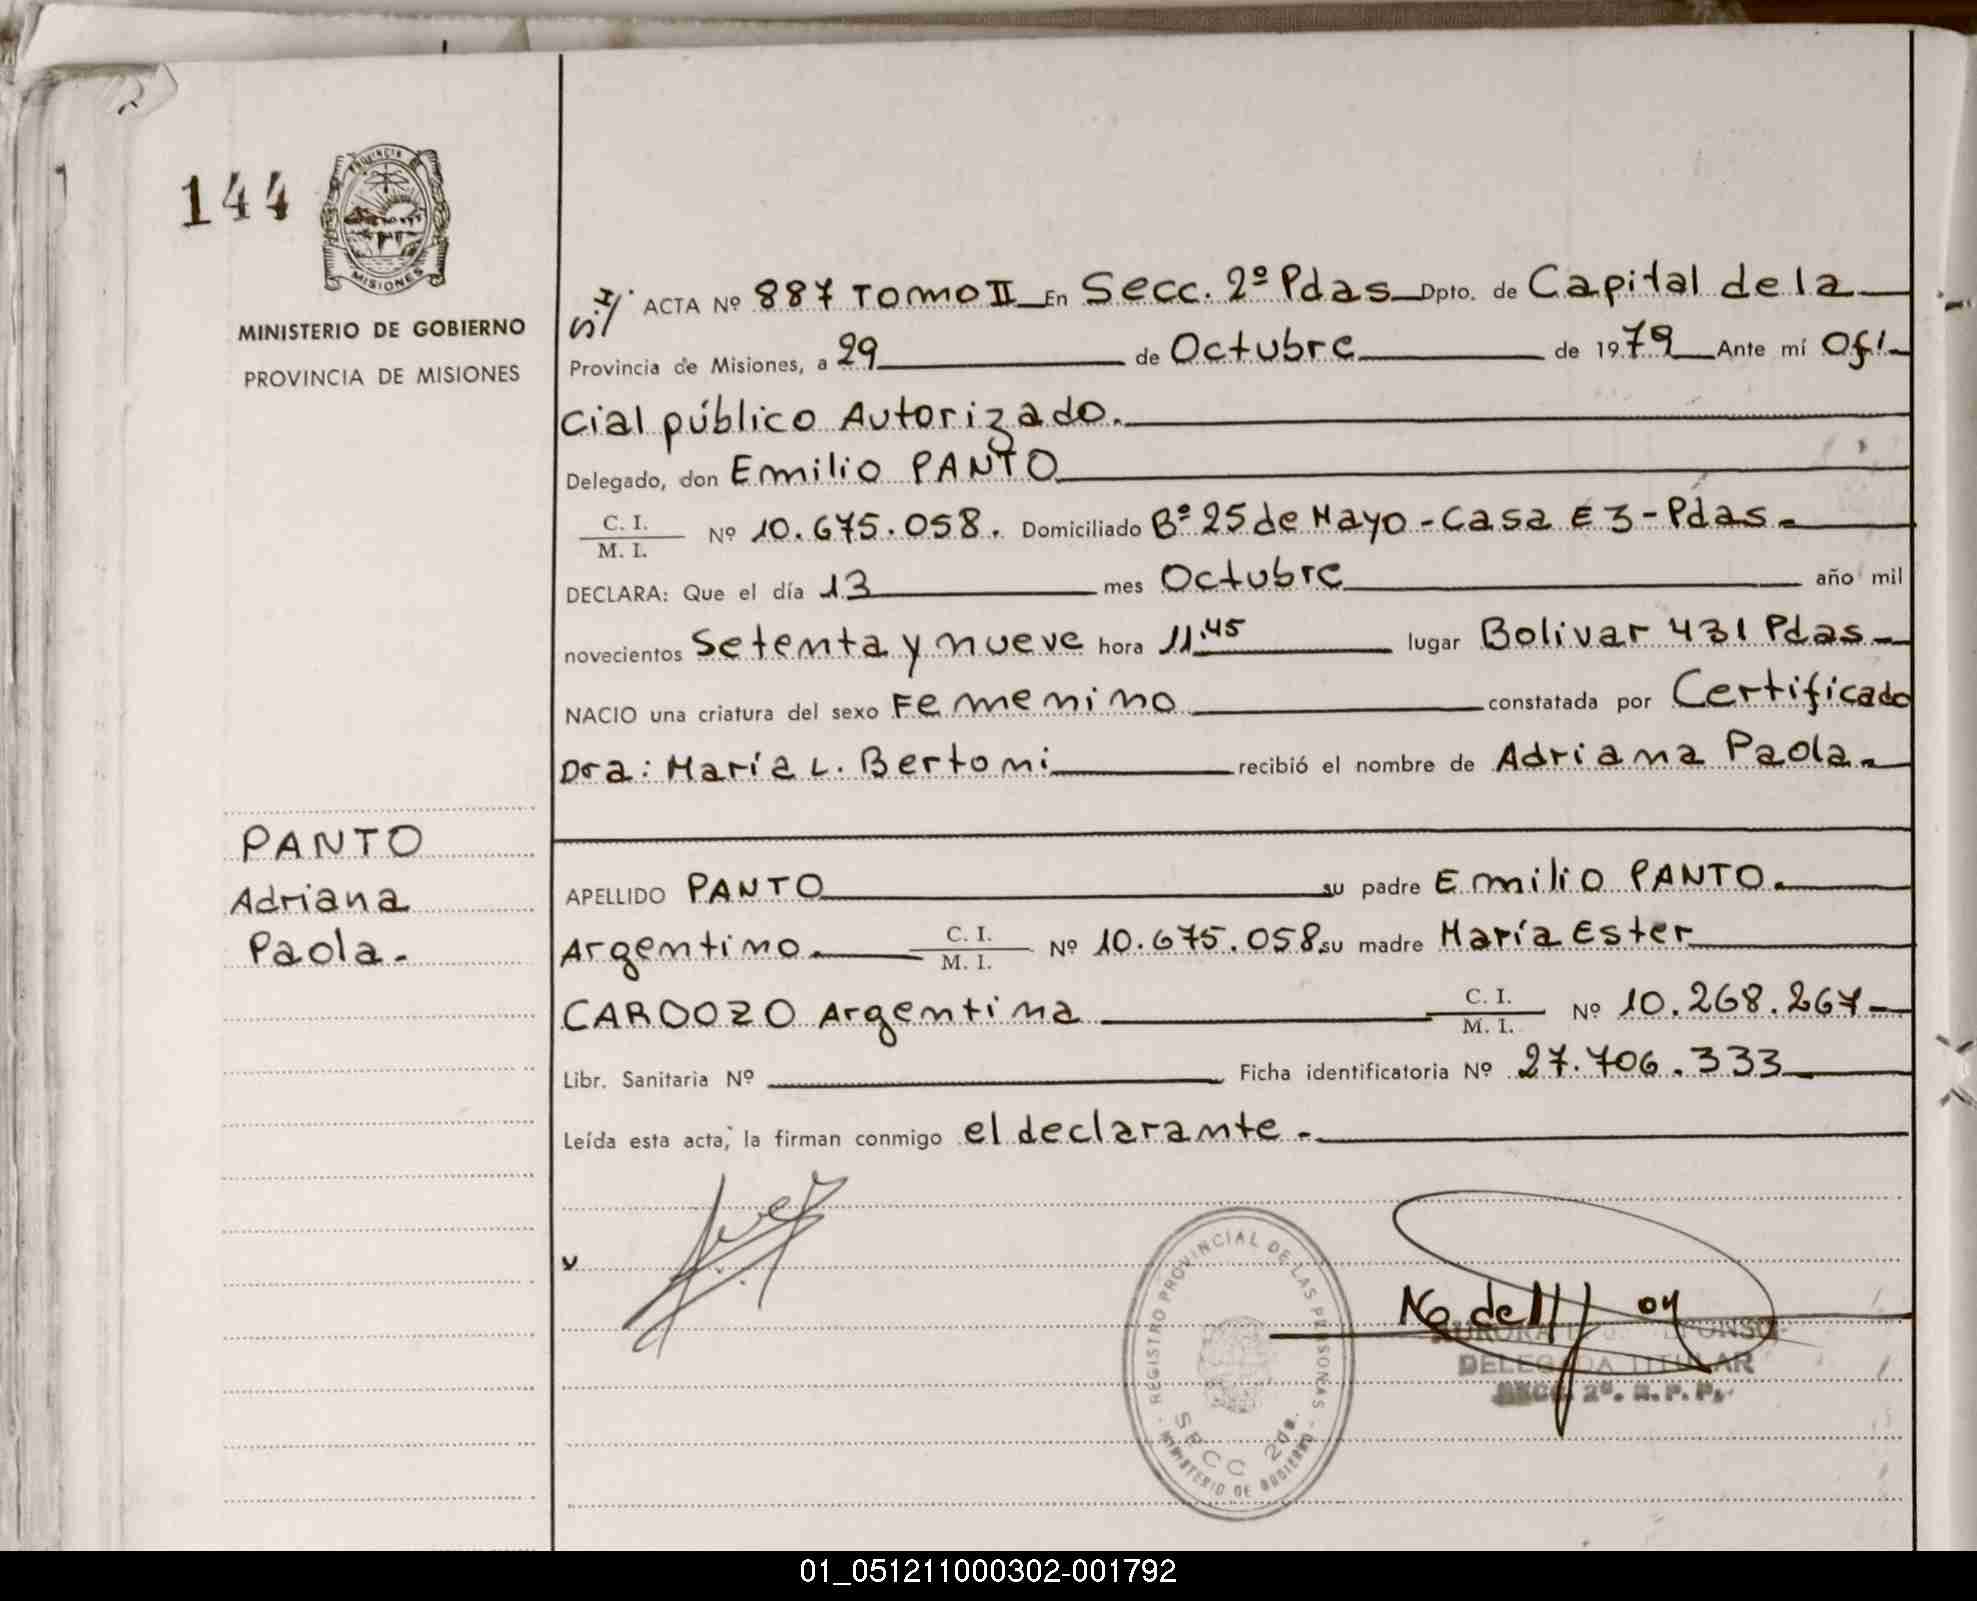 144
PROVINCIA DE
MISIONES
MINISTERIO DE GOBIERNO
PROVINCIA DE MISIONES
PANTO
Adriana
Paola.
ACTA Nº 887 TOMO II En Secc. 2º Pdas Dpto. de Capital de la
Provincia de Misiones, a 29 de Octubre de 1979 Ante mí Ofi
cial público Autorizado.
Delegado, don Emilio PANTO
C. I.
M. I. Nº 10.675.058. Domiciliado Bº 25 de Mayo - Casa E 3 - Pdas.
DECLARA: Que el día 13 mes Octubre año mil
novecientos Setenta y nueve hora 11.45 lugar Bolivar 431 Pdas
NACIO una criatura del sexo Femenino constatada por Certificado
Dra: María L. Bertoni recibió el nombre de Adriana Paola.
APELLIDO PANTO su padre Emilio PANTO.
Argentino. C. I. M. I. Nº 10.675.058 su madre María Ester
CARDOZO Argentina C. I. M. I. Nº 10.268.267
Libr. Sanitaria Nº Ficha identificatoria Nº 27.706.333
Leída esta acta, la firman conmigo el declarante.
REGISTRO PROVINCIAL DE LAS PERSONAS
SECC 2da.
MINISTERIO DE GOBIERNO
AURORA
DELEGADA TITULAR
SECC. 2º. R. P. P.
01_051211000302-001792